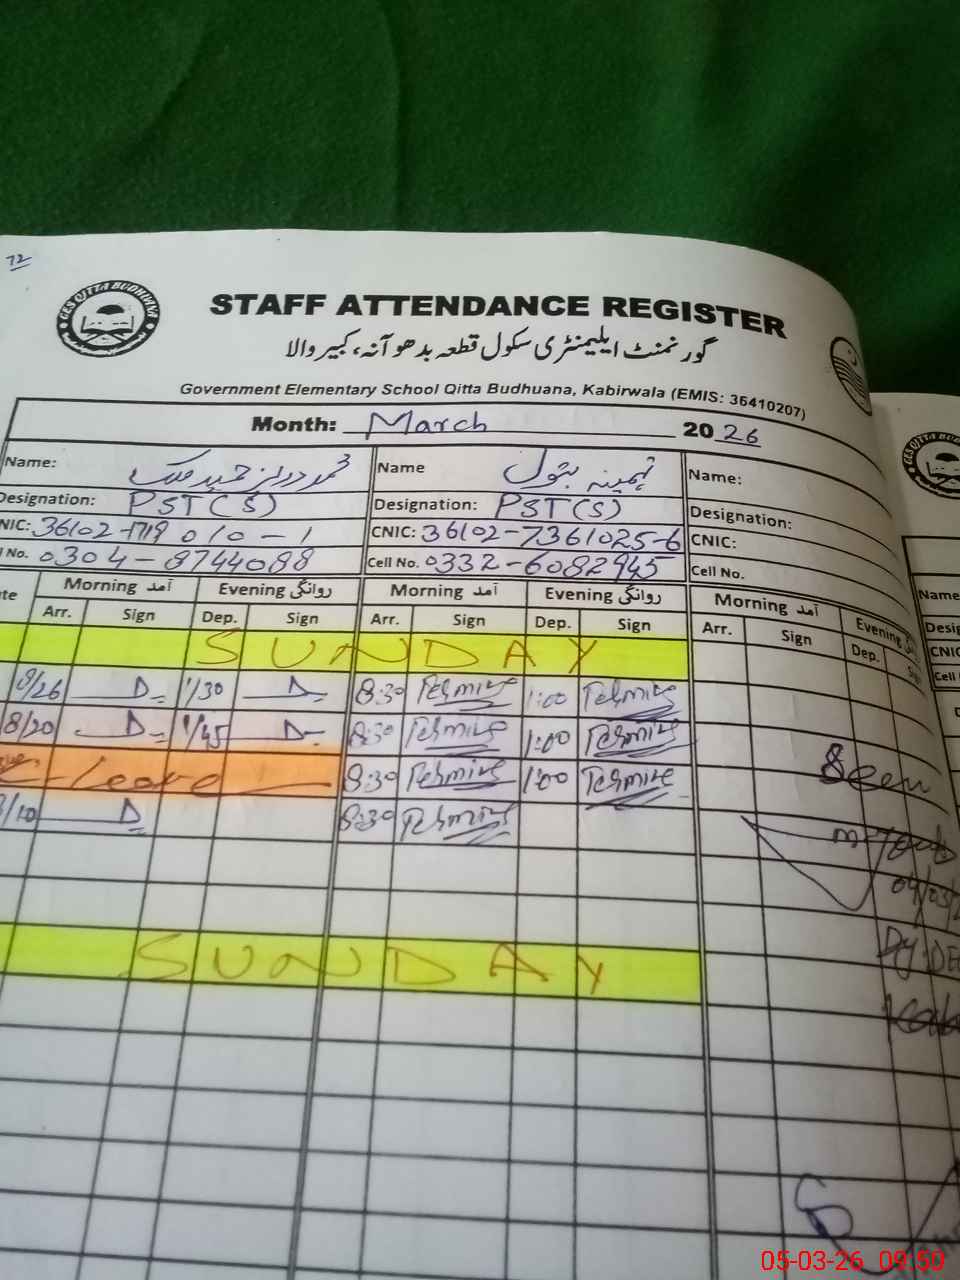 72
GES QITTA BUDHUANA
STAFF ATTENDANCE REGISTER
گورنمنٹ ایلیمنٹری سکول قطعہ بدھوآنہ، کبیروالا
Government Elementary School Qitta Budhuana, Kabirwala (EMIS: 36410207)
Month: March 2026
Name: محمد
Name تہمینہ بتول
Name:
Designation: PST(S)
Designation: PST(S)
Designation:
NIC: 36102-1719010-1
CNIC: 36102-7361025-6
CNIC:
l No. 0304-8744088
Cell No. 0332-6082945
Cell No.
te Morning آمد Evening روانگی Morning آمد Evening روانگی Morning آمد Evening
Arr. Sign Dep. Sign Arr. Sign Dep. Sign Arr. Sign Dep.
SUNDAY
8/26 1/30 8:30 1:00
8/20 1/45 8:30 1:00
leave 8:30 1:00
Seen
8/10 8:30
04/03/2
Dy. DE
SUNDAY
Name
Desig
CNIC
Cell
05-03-26 09:50